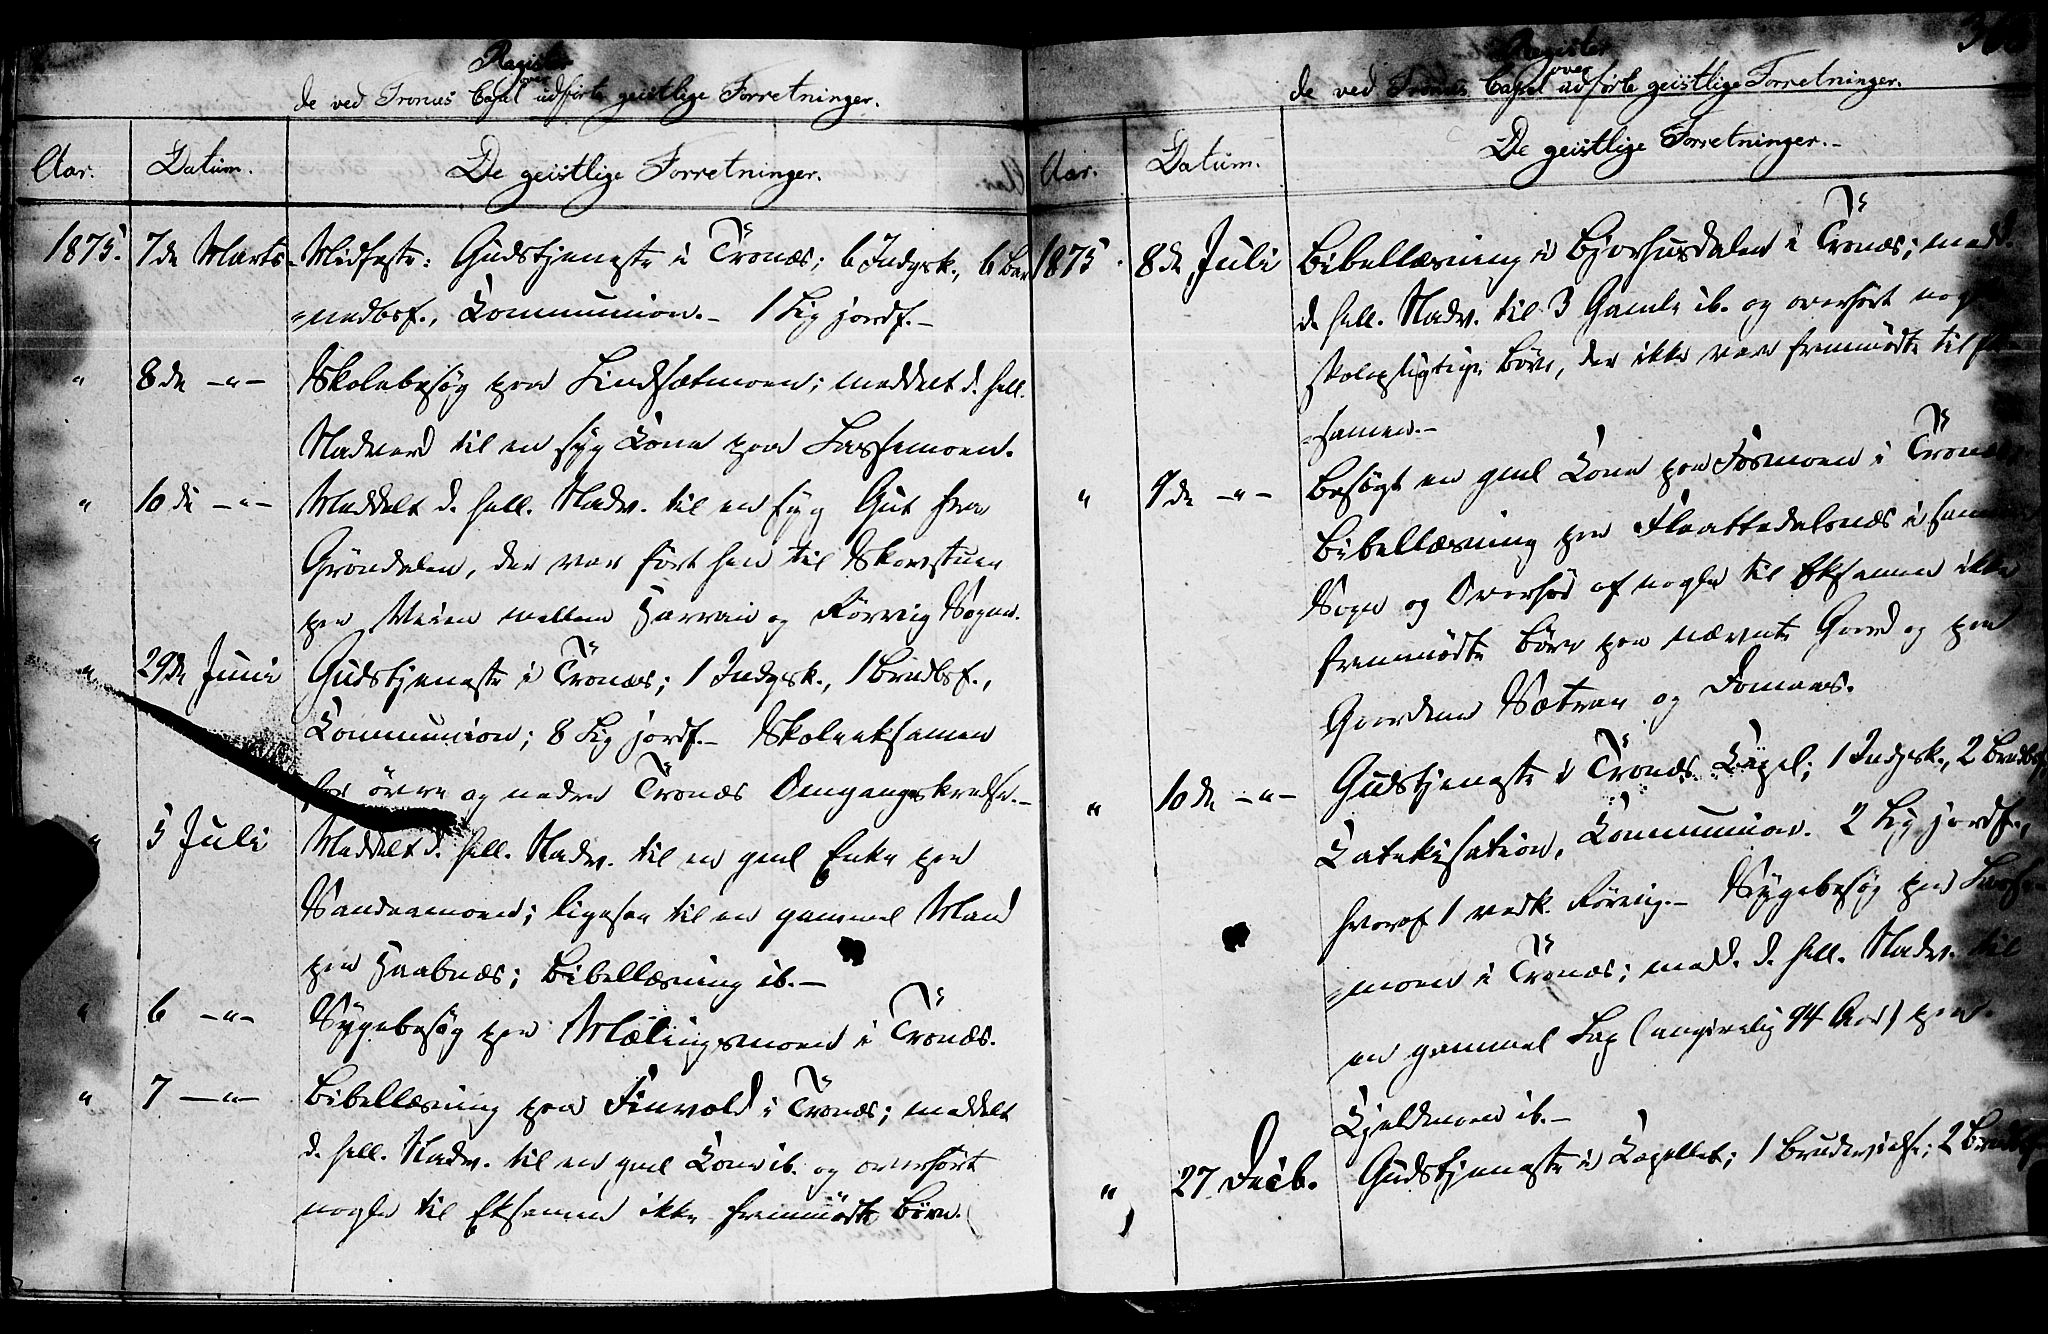 Register
over
de ved Tronæs Capel udførte geistlige Forretninger.
Aar. Datum. De geistlige Forretninger.
1875. 7de Marts Midfaste: Gudstjeneste i Tronæs; 6 Indgsk., 6 Bar
=nedbsf., Communion.- 1 Lig jordf.-
" 8de -"- Skolebesøg paa Lindsætmoen; meddelt d. hell.
Nadverd til en syg Kone paa Lassemoen.
" 10de -"- Meddelt d. hell. Nadv. til en syg Gut fra
Gröndalen, der var ført hen til Skovstuen
paa Veien mellem Harran og Rörvig Sogne.
" 29de Juni Gudstjeneste i Tronæs; 1 Indgsk., 1 Brudbsf.,
Communion; 8 Lig jordf.- Skoleeksamen
for övre og nedre Tronæs Omgangskredse.-
" 5 Juli Meddelt d. hell. Nadv. til en gml Enke paa
Sandaamoen; ligesaa til en gammel Mand
paa Haabnæs; Bibellæsning ib.-
" 6 -"- Sygebesøg paa Mælingsmoen i Tronæs.
" 7 -"- Bibellæsning paa Finvold i Tronæs; meddelt
d. hell. Nadv. til en gml Kone ib. og overhørt
nogle til Eksamen ikke fremmødte Børn.
Register
over
de ved Tronæs Capel udførte geistlige Forretninger.
Aar. Datum. De geistlige Forretninger.-
1875. 8de Juli Bibellæsning i Bjørhusdalen i Tronæs; medd.
d. hell. Nadv. til 3 Gamle ib. og overhørt nogle
skolepligtige Børn, der ikke var fremmødte til
=samen.-
" 9de -"- Besøgt en gml Kone paa Fosmoen i Tronæs,
Bibellæsning paa Flaattedalsnæs i samme
Sogn og Overhør af nogle til Eksamen ikke
fremmødte Børn paa nævnte Gaard og paa
Gaardene Sætran og Domaas.
" 10de -"- Gudstjeneste i Tronæs Capel; 1 Indgsk., 2 Brudbsf,
Katekisation, Communion. 2 Lig jordf.,
hvoraf 1 vedk. Rörvig.- Sygebesøg paa Lasse=
=moen i Tronæs; medd. d. hell. Nadv. til
en gammel Lap (angivelig 94 Aar) paa
Kjeldmoen ib.-
" 27 Decb. Gudstjeneste i Capellet; 1 Brudevielse; 2 Brudbsf